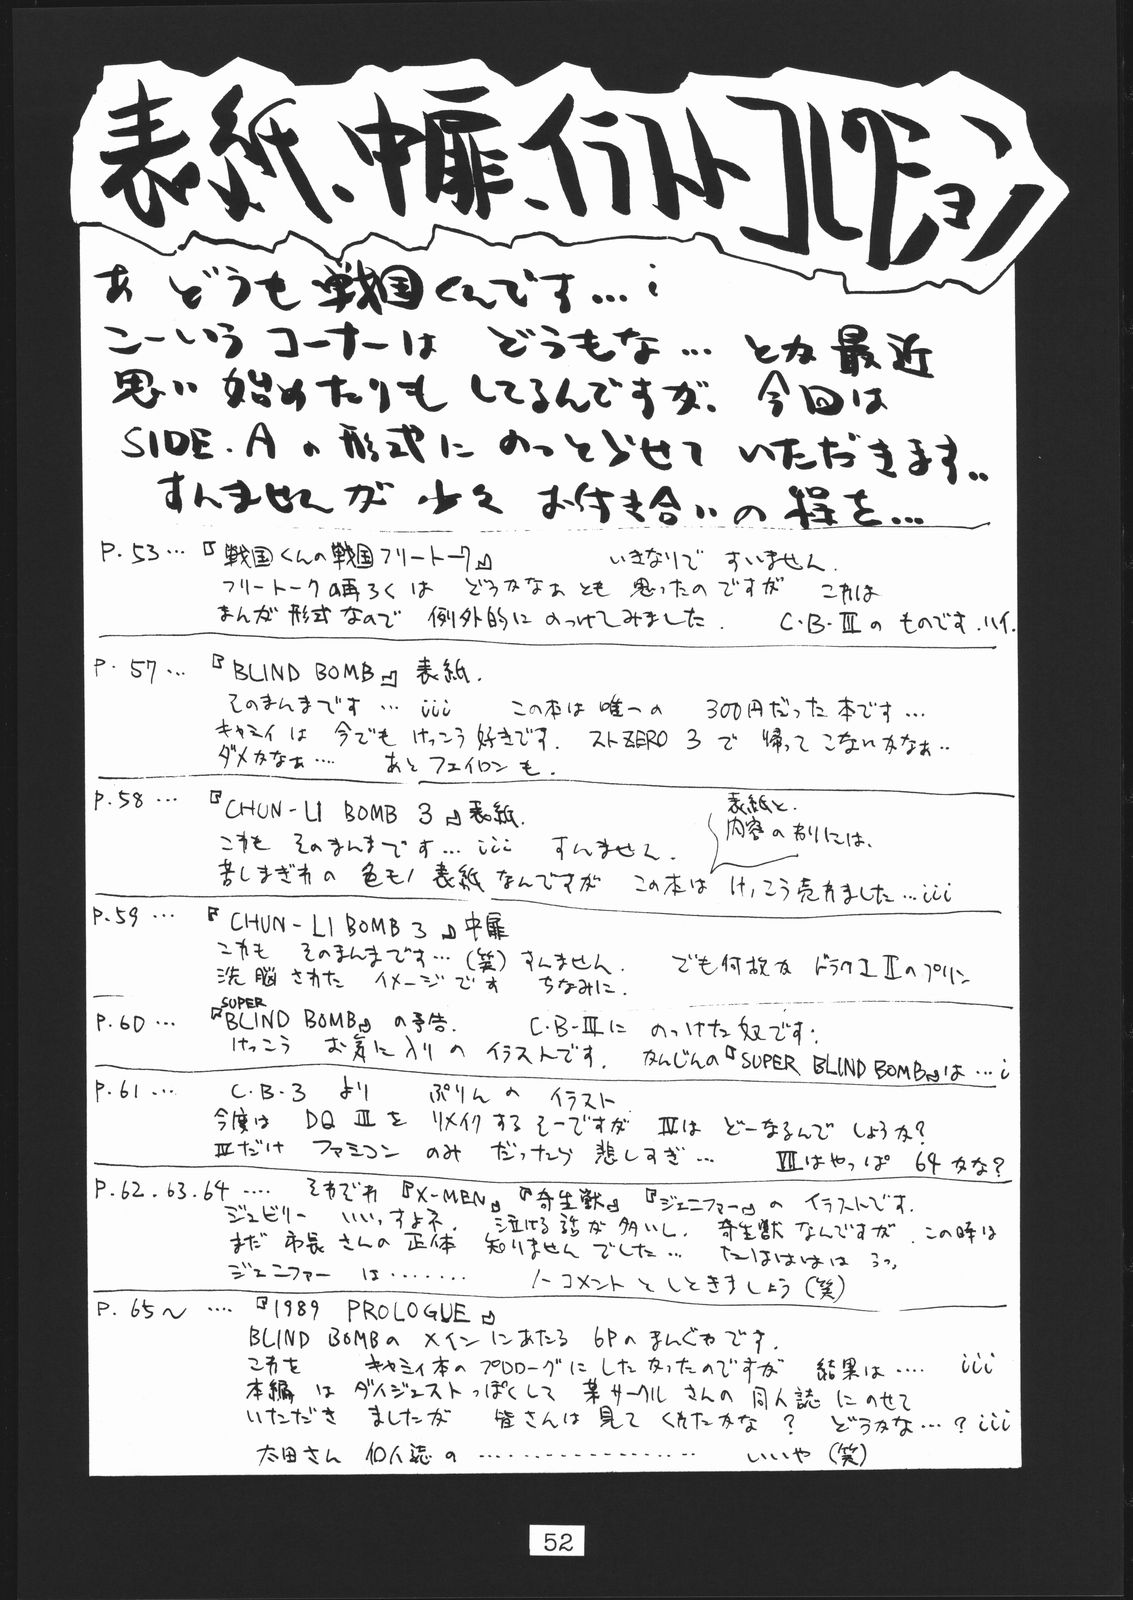 表紙、中扉、イラストコレクション
あ どうも 戦国くんです…i
こーいう コーナーは どうもな… とか 最近
思い始めたりも してるんですが、今回は
SIDE.A の 形式に のっとらせて いただきます..
すんませんが 少々 お付き合いの 程を…
P.53… 『戦国くんの戦国フリートーク』 いきなりで すいません.
フリートークの再ろくは どうかなぁとも 思ったのですが これは
まんが形式なので 例外的に のっけてみました. C・B・Ⅲの ものです.ハイ.
P.57… 『BLIND BOMB』表紙.
そのまんまです… iii この本は 唯一の 300円だった本です…
キャミィは 今でも けっこう好きです. ストZERO 3で 帰って こないかなぁ..
ダメかなぁ… あと フェイロンも.
P.58… 『CHUN-LI BOMB 3』表紙.
これも そのまんまです… iii すんません.
表紙と.
内容のわりには、
苦しまぎれの 色モノ 表紙なんですが この本は けっこう売れました…iii
P.59… 『CHUN-LI BOMB 3』中扉
これも そのまんまです…(笑) すんません. でも何故か ドラクエⅡのプリン
洗脳された イメージです ちなみに.
P.60… 『SUPER BLIND BOMB』の予告. C・B-Ⅲに のっけた奴です.
けっこう お気に入りの イラストです. かんじんの『SUPER BLIND BOMB』は…i
P.61… C.B.3 より ぷりんの イラスト
今度は DQ Ⅲを リメイクするそーですが Ⅳは どーなるんで しょうか?
Ⅳだけ ファミコン のみ だったら 悲しすぎ… Ⅶはやっぱ 64かな?
P.62.63.64…. それぞれ 『X-MEN』『寄生獣』『ジェニファー』の イラストです.
ジュビリー いいっすよネ. 泣ける話が多いし. 寄生獣なんですが この時は
まだ 市長さんの正体 知りませんでした… たはははは うっ,
ジェニファー は…….. ノーコメントと しときましょう(笑)
P.65〜 …. 『1989 PROLOGUE』
BLIND BOMBの メインにあたる 6Pのまんがです.
これを キャミィ本の プロローグに したかったのですが 結果は….. iii
本編は ダイジェストっぽくして 某サークル さんの 同人誌に のせて
いただき ましたが 皆さんは 見て くれたかな? どうかな…? iii
太田さん 個人誌の ………………… いいや(笑)
52